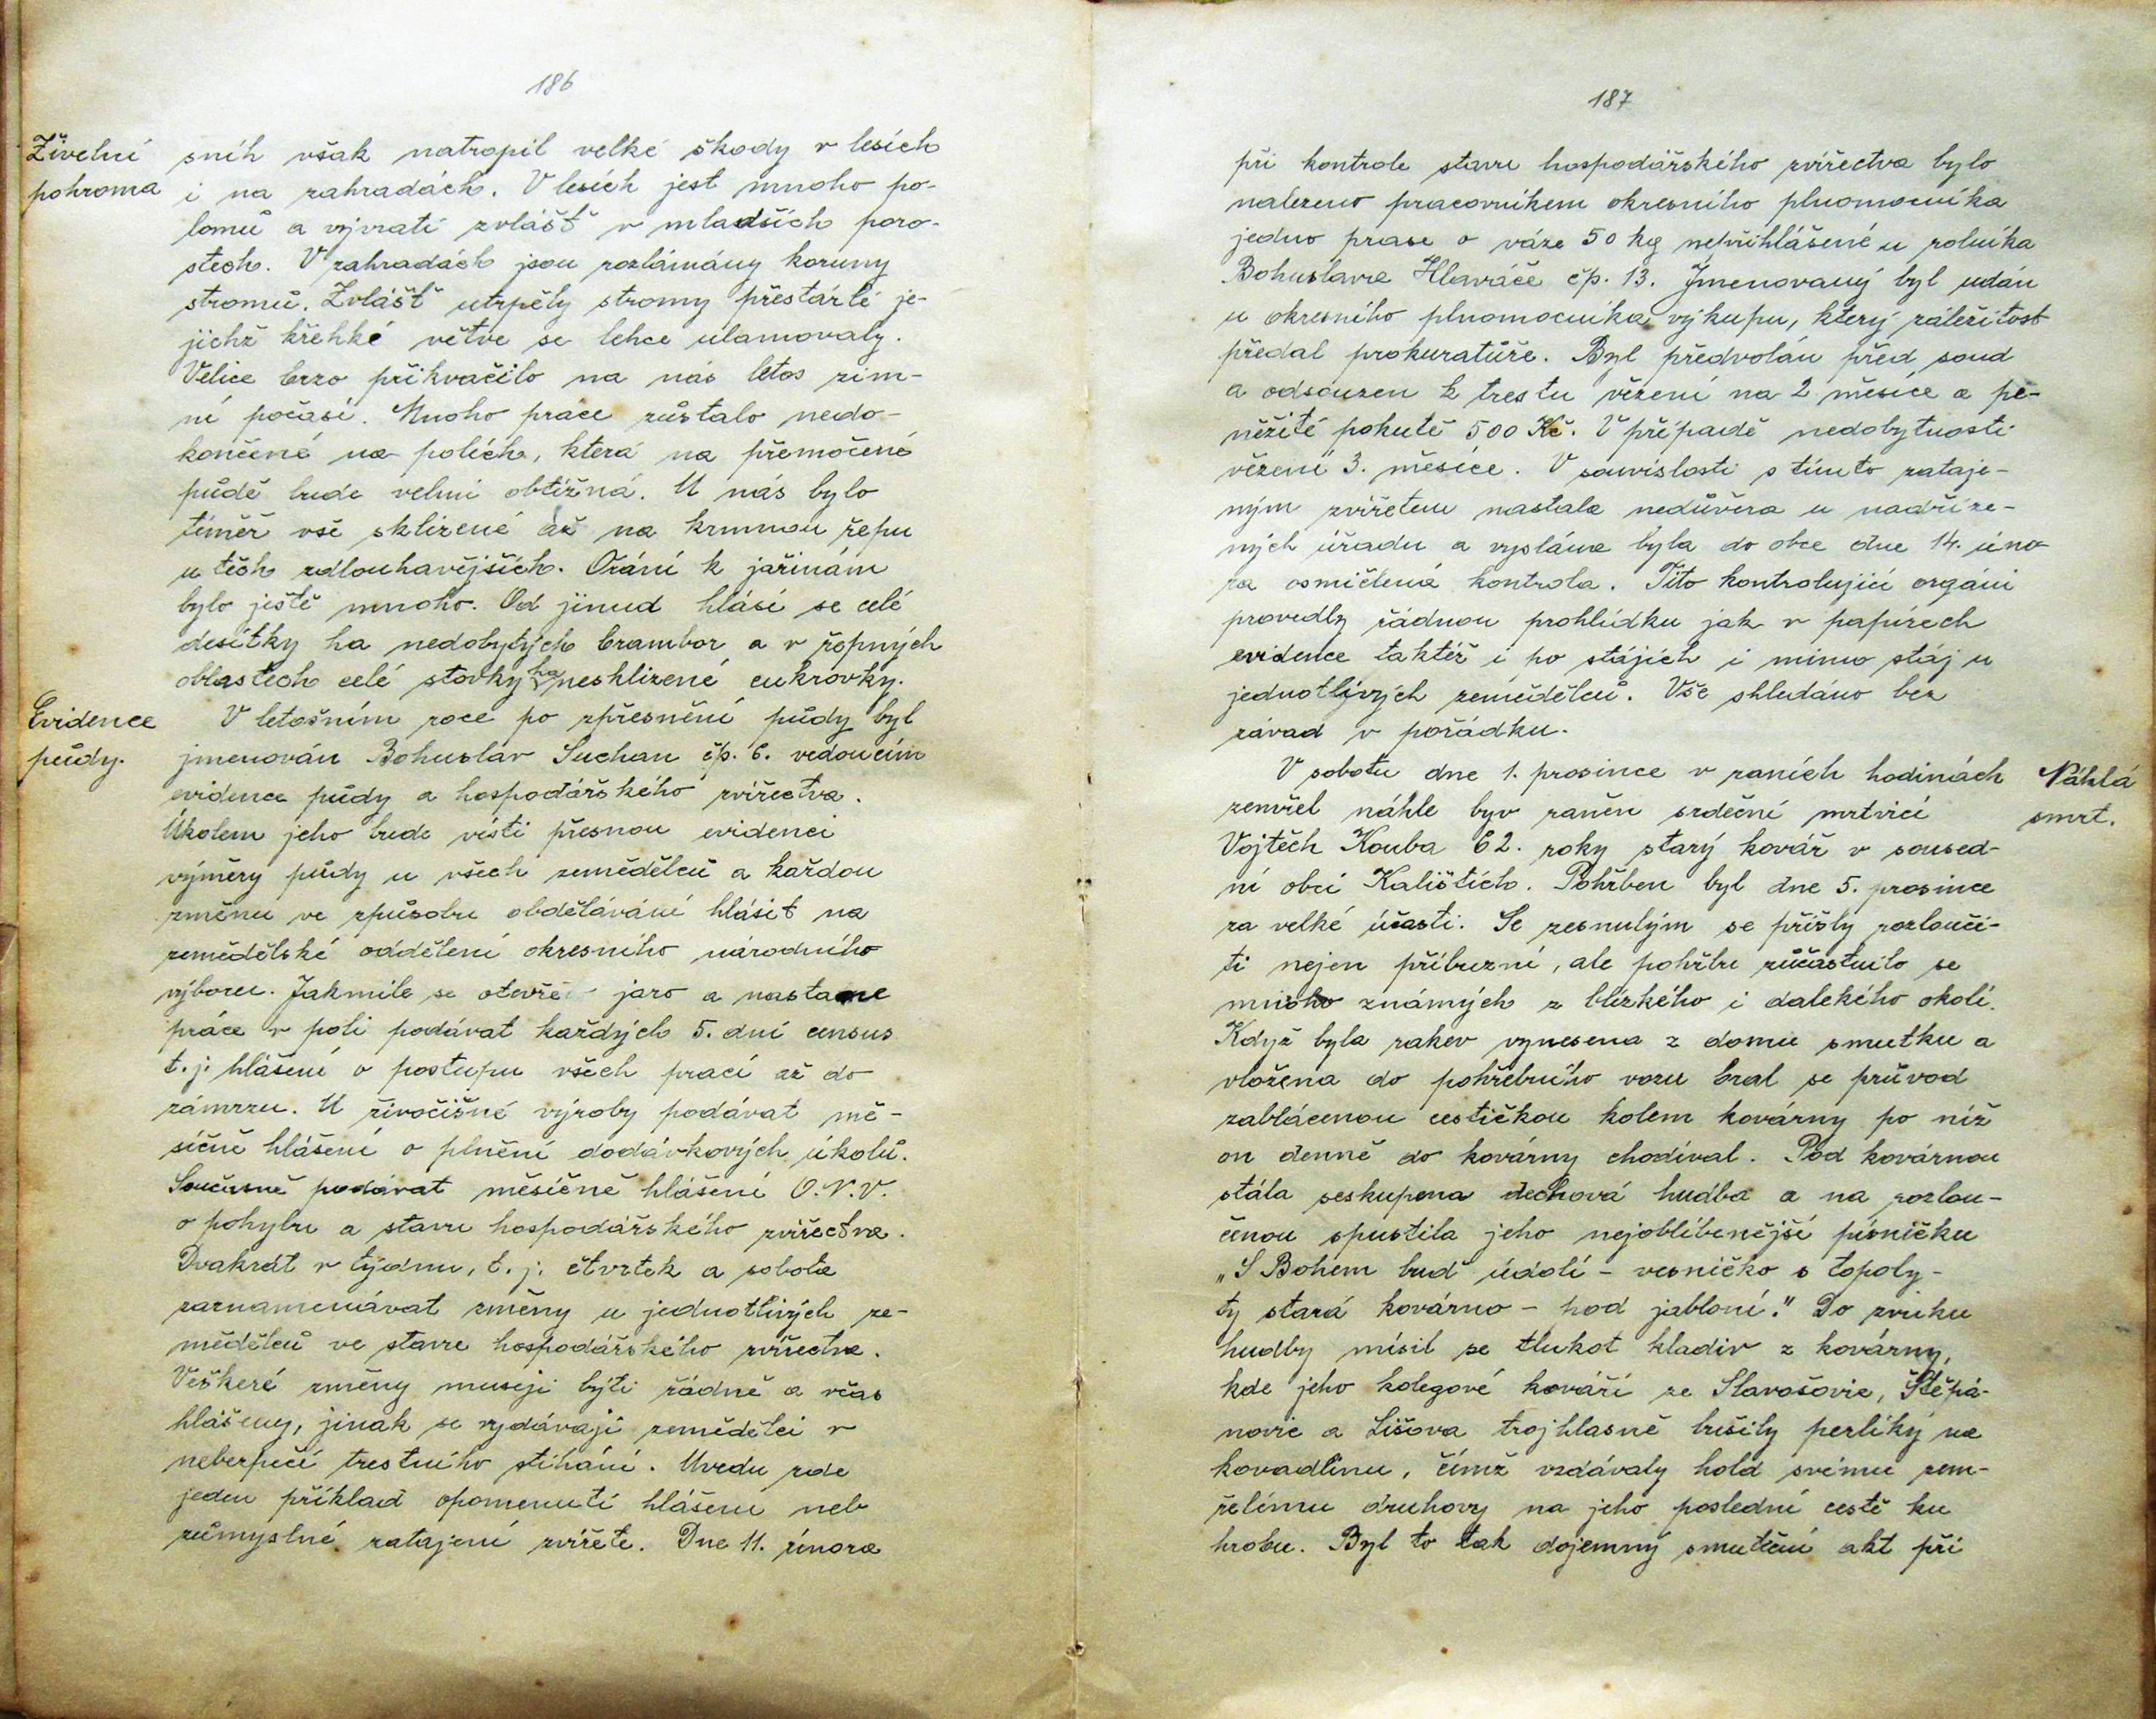 186
Živelní
pohroma
sníh však natropil velké škody v lesích
i na zahradách. V lesích jest mnoho po-
lomů a vývratí zvlášť v mladších poro-
stech. V zahradách jsou rozlámány koruny
stromů. Zvlášť utrpěly stromy přestárlé je-
jichž křehké větve se lehce ulamovaly.
Velice brzo přikvačilo na nás letos zim-
ní počasí. Mnoho práce zůstalo nedo-
končené na polích, která na přemočené
půdě bude velmi obtížná. U nás bylo
téměř vše sklizené až na krmnou řepu
u těch zdlouhavějších. Orání k jařinám
bylo ještě mnoho. Od jinud hlásí se celé
desítky ha nedobytých brambor a v řepných
oblastech celé stovky ha nesklizené cukrovky.
Evidence
půdy.
V letošním roce po zpřesnění půdy byl
jmenován Bohuslav Suchan čp. 6. vedoucím
evidence půdy a hospodářského zvířectva.
Úkolem jeho bude vésti přesnou evidenci
výměry půdy u všech zemědělců a každou
změnu ve způsobu obdělávání hlásit na
zemědělské oddělení okresního národního
výboru. Jakmile se otevře jaro a nastane
práce v poli podávat každých 5. dní census
t.j. hlášení o postupu všech prací až do
zámrzu. U živočišné výroby podávat mě-
síčně hlášení o plnění dodávkových úkolů.
Současně podávat měsíčně hlášení O.N.V.
o pohybu a stavu hospodářského zvířectva.
Dvakrát v týdnu, t.j. čtvrtek a sobota
zaznamenávat změny u jednotlivých ze-
mědělců ve stavu hospodářského zvířectva.
Veškeré změny musejí býti řádně a včas
hlášeny, jinak se vydávají zemědělci v
nebezpečí trestního stíhání. Uvedu zde
jeden příklad opomenutí hlášení neb
zúmyslné zatajení zvířete. Dne 11. února
187
při kontrole stavu hospodářského zvířectva bylo
nalezeno pracovníkem okresního plnomocníka
jedno prase o váze 50 kg nepřihlášené u rolníka
Bohuslava Hlaváče čp. 13. Jmenovaný byl udán
u okresního plnomocníka výkupu, který záležitost
předal prokuratůře. Byl předvolán před soud
a odsouzen k trestu vězení na 2 měsíce a pe-
něžité pokutě 500 Kč. V případě nedobytnosti
vězení 3. měsíce. V souvislosti s tímto zataje-
ným zvířetem nastala nedůvěra u nadříze-
ných úřadu a vyslána byla do obce dne 14. úno-
ra osmičlená kontrola. Tito kontrolující orgáni
provedly řádnou prohlídku jak v papírech
evidence taktéž i po stájích i mimo stáj u
jednotlivých zemědělců. Vše shledáno bez
závad v pořádku.
V sobotu dne 1. prosince v raních hodinách
zemřel náhle byv raněn srdeční mrtvicí
Náhlá
smrt.
Vojtěch Kouba 62. roky starý kovář v soused-
ní obci Kalištích. Pohřben byl dne 5. prosince
za velké účasti. Se zesnulým se přišly rozlouči-
ti nejen příbuzní, ale pohřbu zůčastnilo se
mnoho známých z blízkého i dalekého okolí.
Když byla rakev vynesena z domu smutku a
vložena do pohřebního vozu bral se průvod
zablácenou cestičkou kolem kovárny po níž
on denně do kovárny chodíval. Pod kovárnou
stála seskupena dechová hudba a na rozlou-
čenou spustila jeho nejoblíbenější písničku
„S Bohem buď údolí - vesničko s topoly -
ty stará kovárno - pod jabloní." Do zvuku
hudby mísil se tlukot kladiv z kovárny,
kde jeho kolegové kováři ze Slavošovic, Štěpá-
novic a Lišova trojhlasně bušily perlíky na
kovadlinu, čímž vzdávaly hold svému zem-
řelému druhovy na jeho poslední cestě ku
hrobu. Byl to tak dojemný smuteční akt při